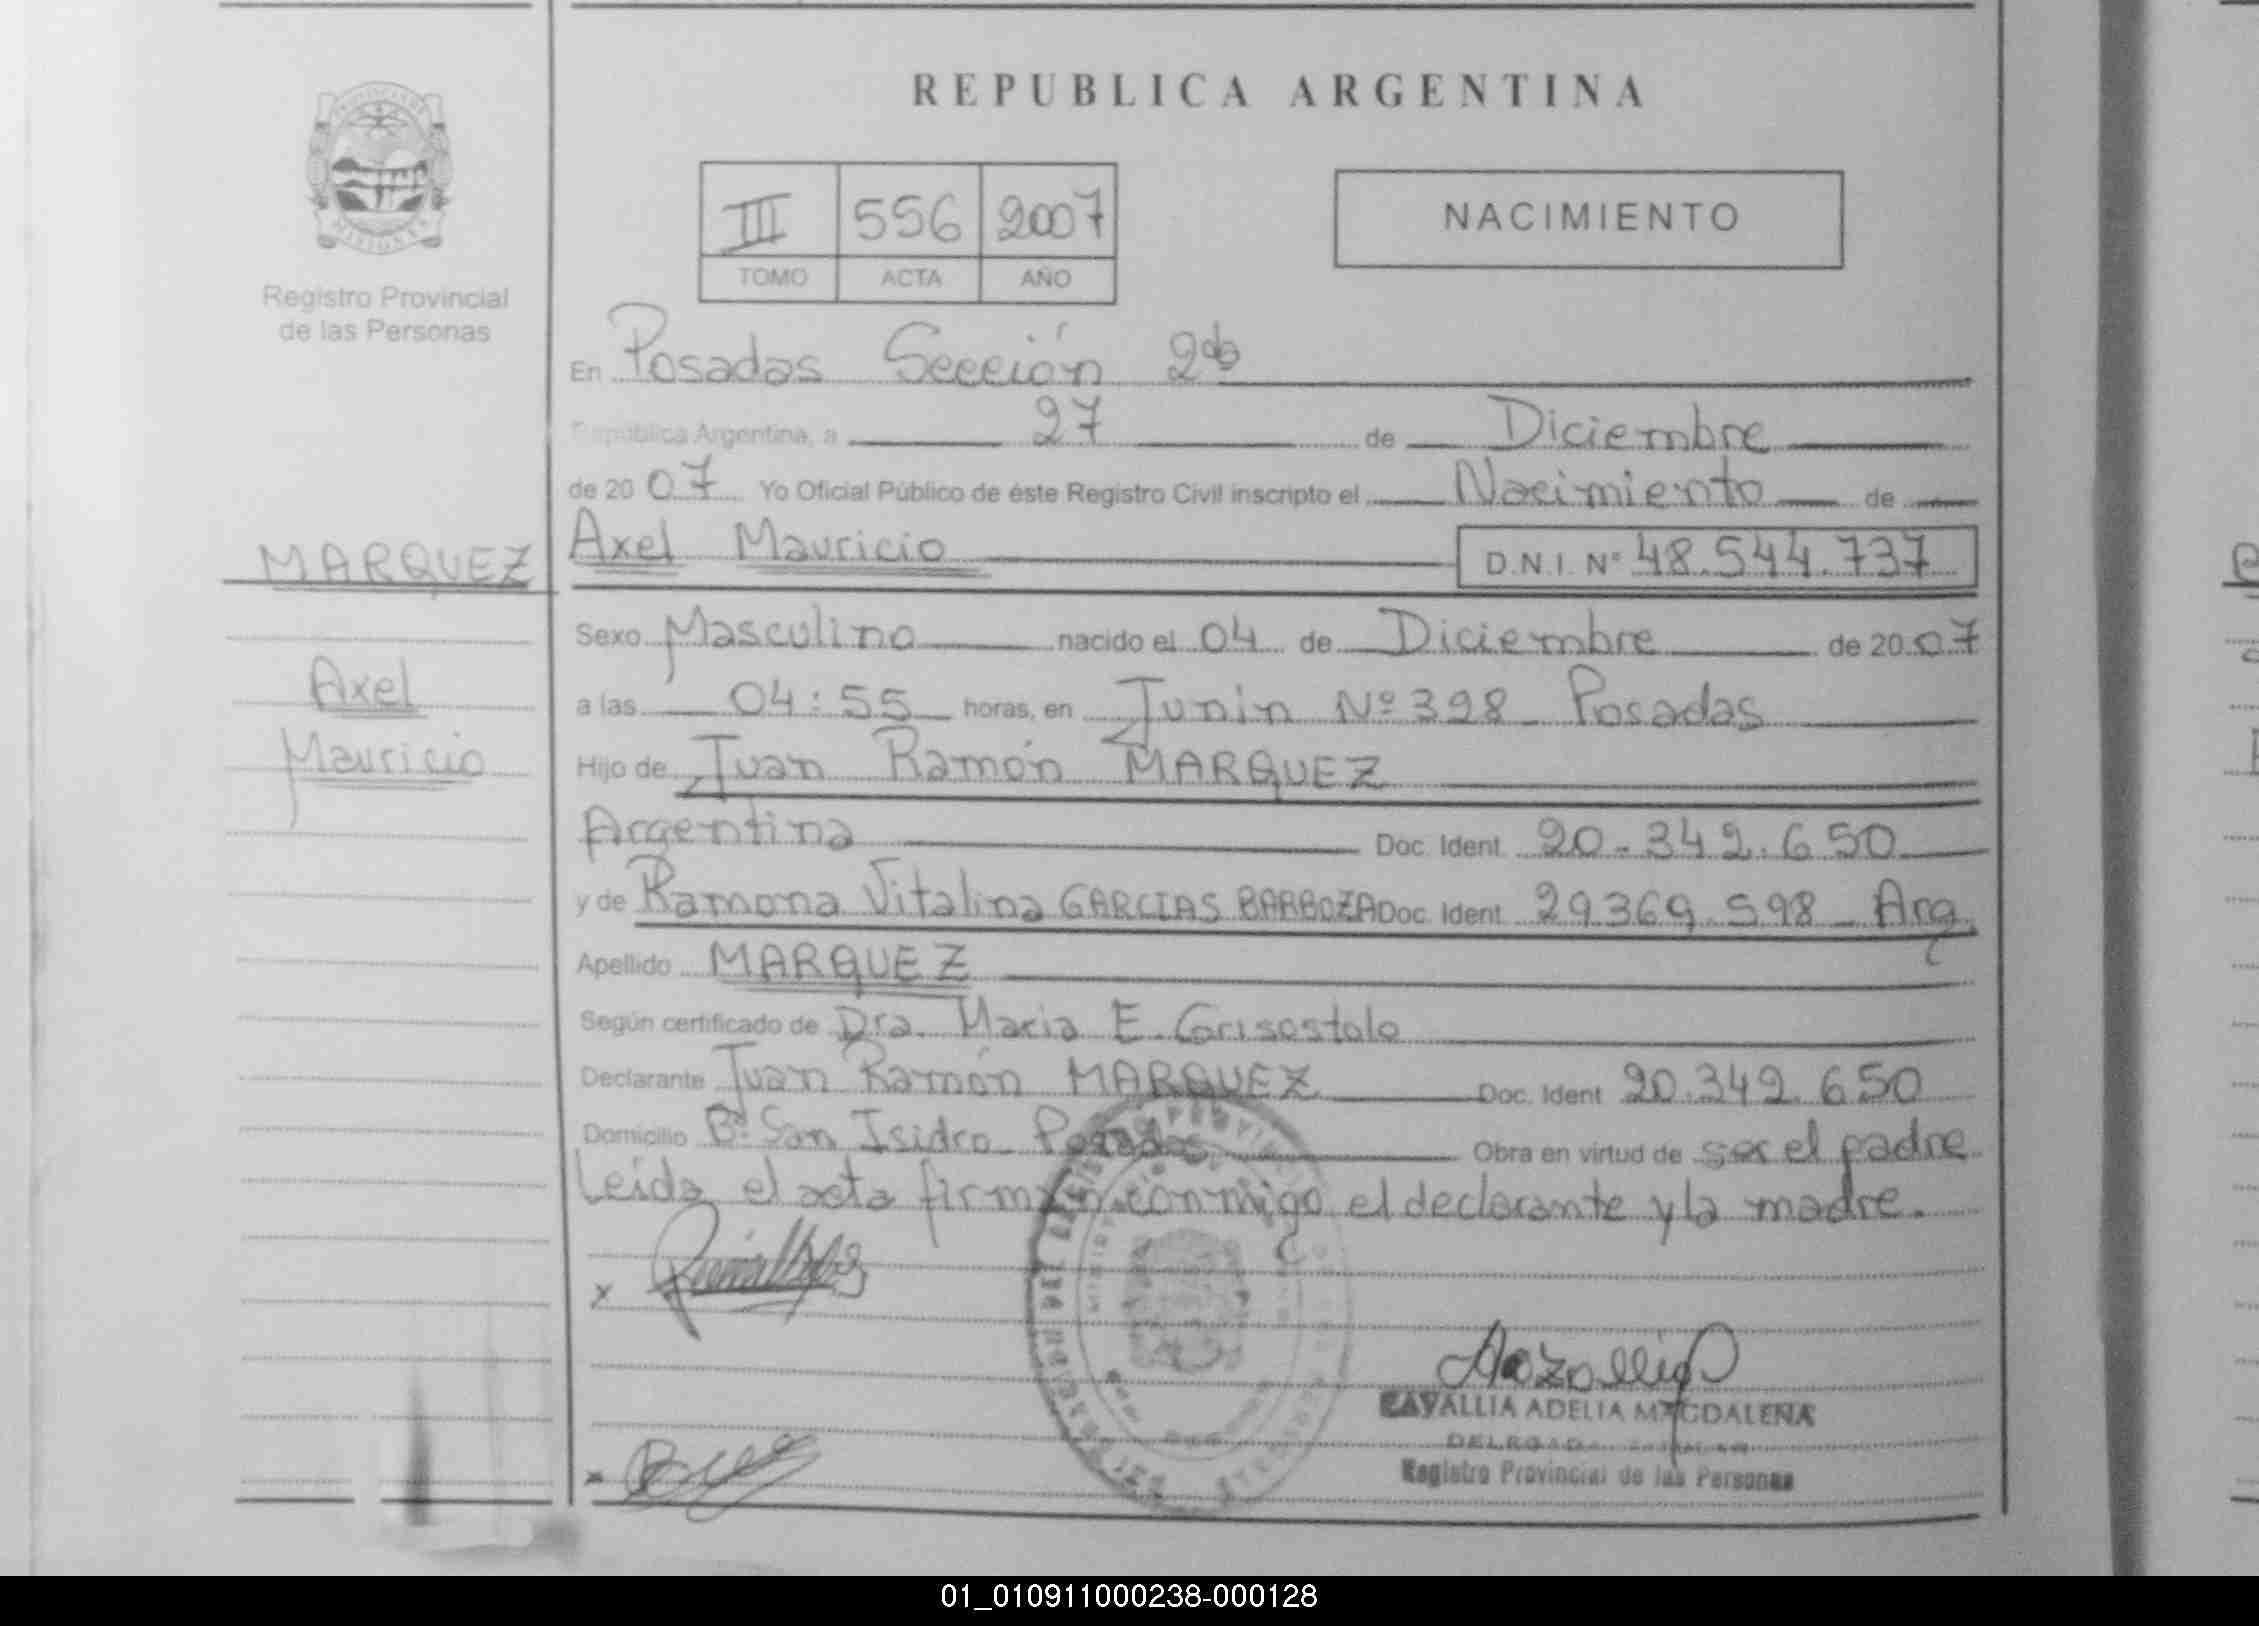 REPUBLICA ARGENTINA
PROVINCIA DE
MISIONES
Registro Provincial
de las Personas
III 556 2007
TOMO ACTA AÑO
NACIMIENTO
En Posadas Sección 2da
República Argentina, a 27 de Diciembre
de 2007 Yo Oficial Público de éste Registro Civil inscripto el Nacimiento de
MARQUEZ
Axel
Mauricio
Axel Mauricio D.N.I. Nº 48.544.737
Sexo Masculino nacido el 04 de Diciembre de 2007
a las 04:55 horas, en Junin Nº 398 - Posadas
Hijo de Juan Ramón MARQUEZ
Argentina Doc. Ident. 20.342.650
y de Ramona Vitalina GARCIAS BARBOZA Doc. Ident. 29369.598 - Arg.
Apellido MARQUEZ
Según certificado de Dra. Maria E.
Declarante Juan Ramón MARQUEZ Doc. Ident 20.342.650
Domicilio Bº San Isidro - Posadas Obra en virtud de ser el padre
Leida el acta firman conmigo el declarante y la madre.
x
x
CAVALLIA ADELIA MAGDALENA
Registro Provincial de las Personas
01_010911000238-000128